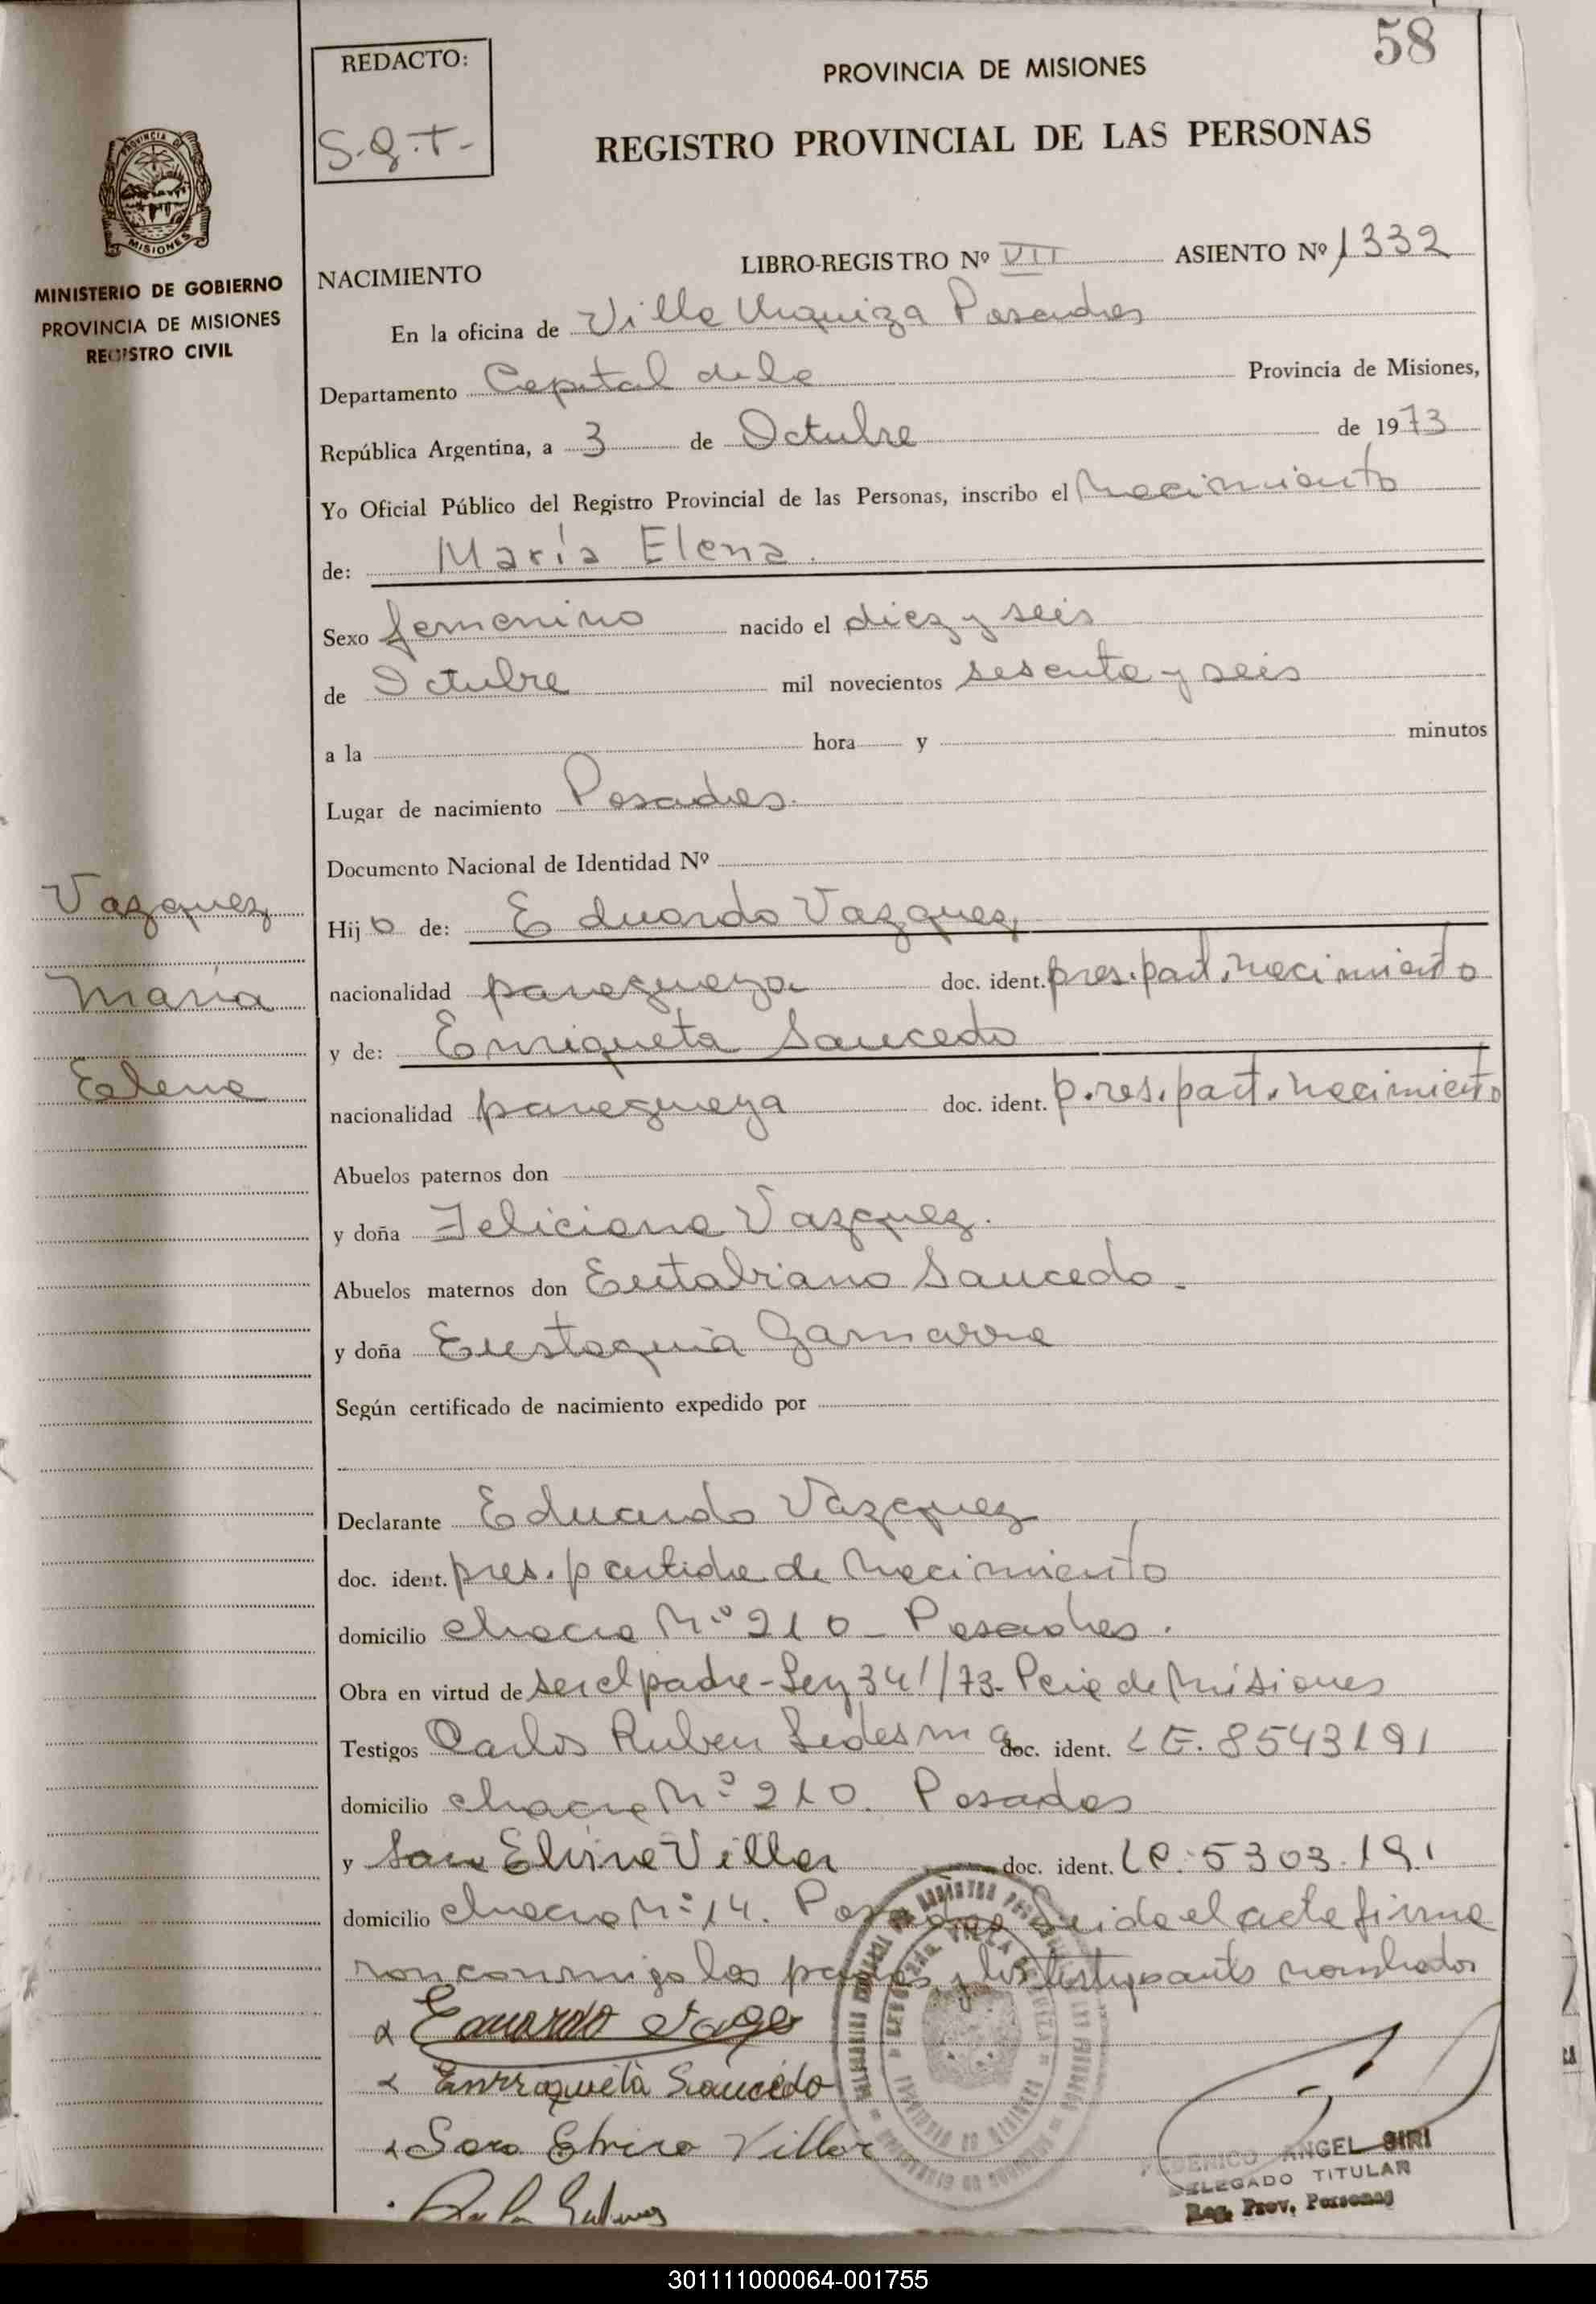 58
REDACTO:
S.G.T.-
PROVINCIA DE MISIONES
REGISTRO PROVINCIAL DE LAS PERSONAS
PROVINCIA DE
MISIONES
MINISTERIO DE GOBIERNO
PROVINCIA DE MISIONES
REGISTRO CIVIL
NACIMIENTO LIBRO-REGISTRO Nº VII ASIENTO Nº 1332
En la oficina de Villa Urquiza Posadas
Departamento Capital de la Provincia de Misiones,
República Argentina, a 3 de Octubre de 1973
Yo Oficial Público del Registro Provincial de las Personas, inscribo el Nacimiento
de: María Elena.
Sexo femenino nacido el diez y seis
de Octubre mil novecientos sesenta y seis
a la hora y minutos
Lugar de nacimiento Posadas.
Documento Nacional de Identidad Nº
Vazquez
Maria
Elena
Hijo de: Eduardo Vazquez,
nacionalidad paraguaya doc. ident. pres. part. nacimiento
y de: Enriqueta Saucedo
nacionalidad paraguaya doc. ident. pres. part. nacimiento
Abuelos paternos don
y doña Feliciana Vazquez.
Abuelos maternos don Saucedo.-
y doña Eustaquia Gamarra
Según certificado de nacimiento expedido por
Declarante Eduardo Vazquez
doc. ident. pres. partida de nacimiento
domicilio chacra Nº 210 - Posadas.
Obra en virtud de ser el padre - Ley 341/73- Pcia de Misiones
Testigos Carlos Ruben Ledesma doc. ident. LE. 8543191
domicilio chacra Nº 210. Posadas
y Sara Elvira Villar doc. ident. LC. 5303.191
domicilio chacra Nº 14. Posadas Leida el acta firma
ron conmigo los padres y los testigos nombrados
Eduardo
Enrriqueta Saucedo
Sara Elvira Villar
FEDERICO ANGEL GIRI
DELEGADO TITULAR
Reg. Prov. Personas
301111000064-001755